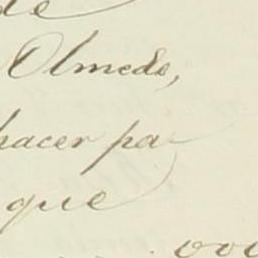 de
Olmedo,
hacer pa-
que